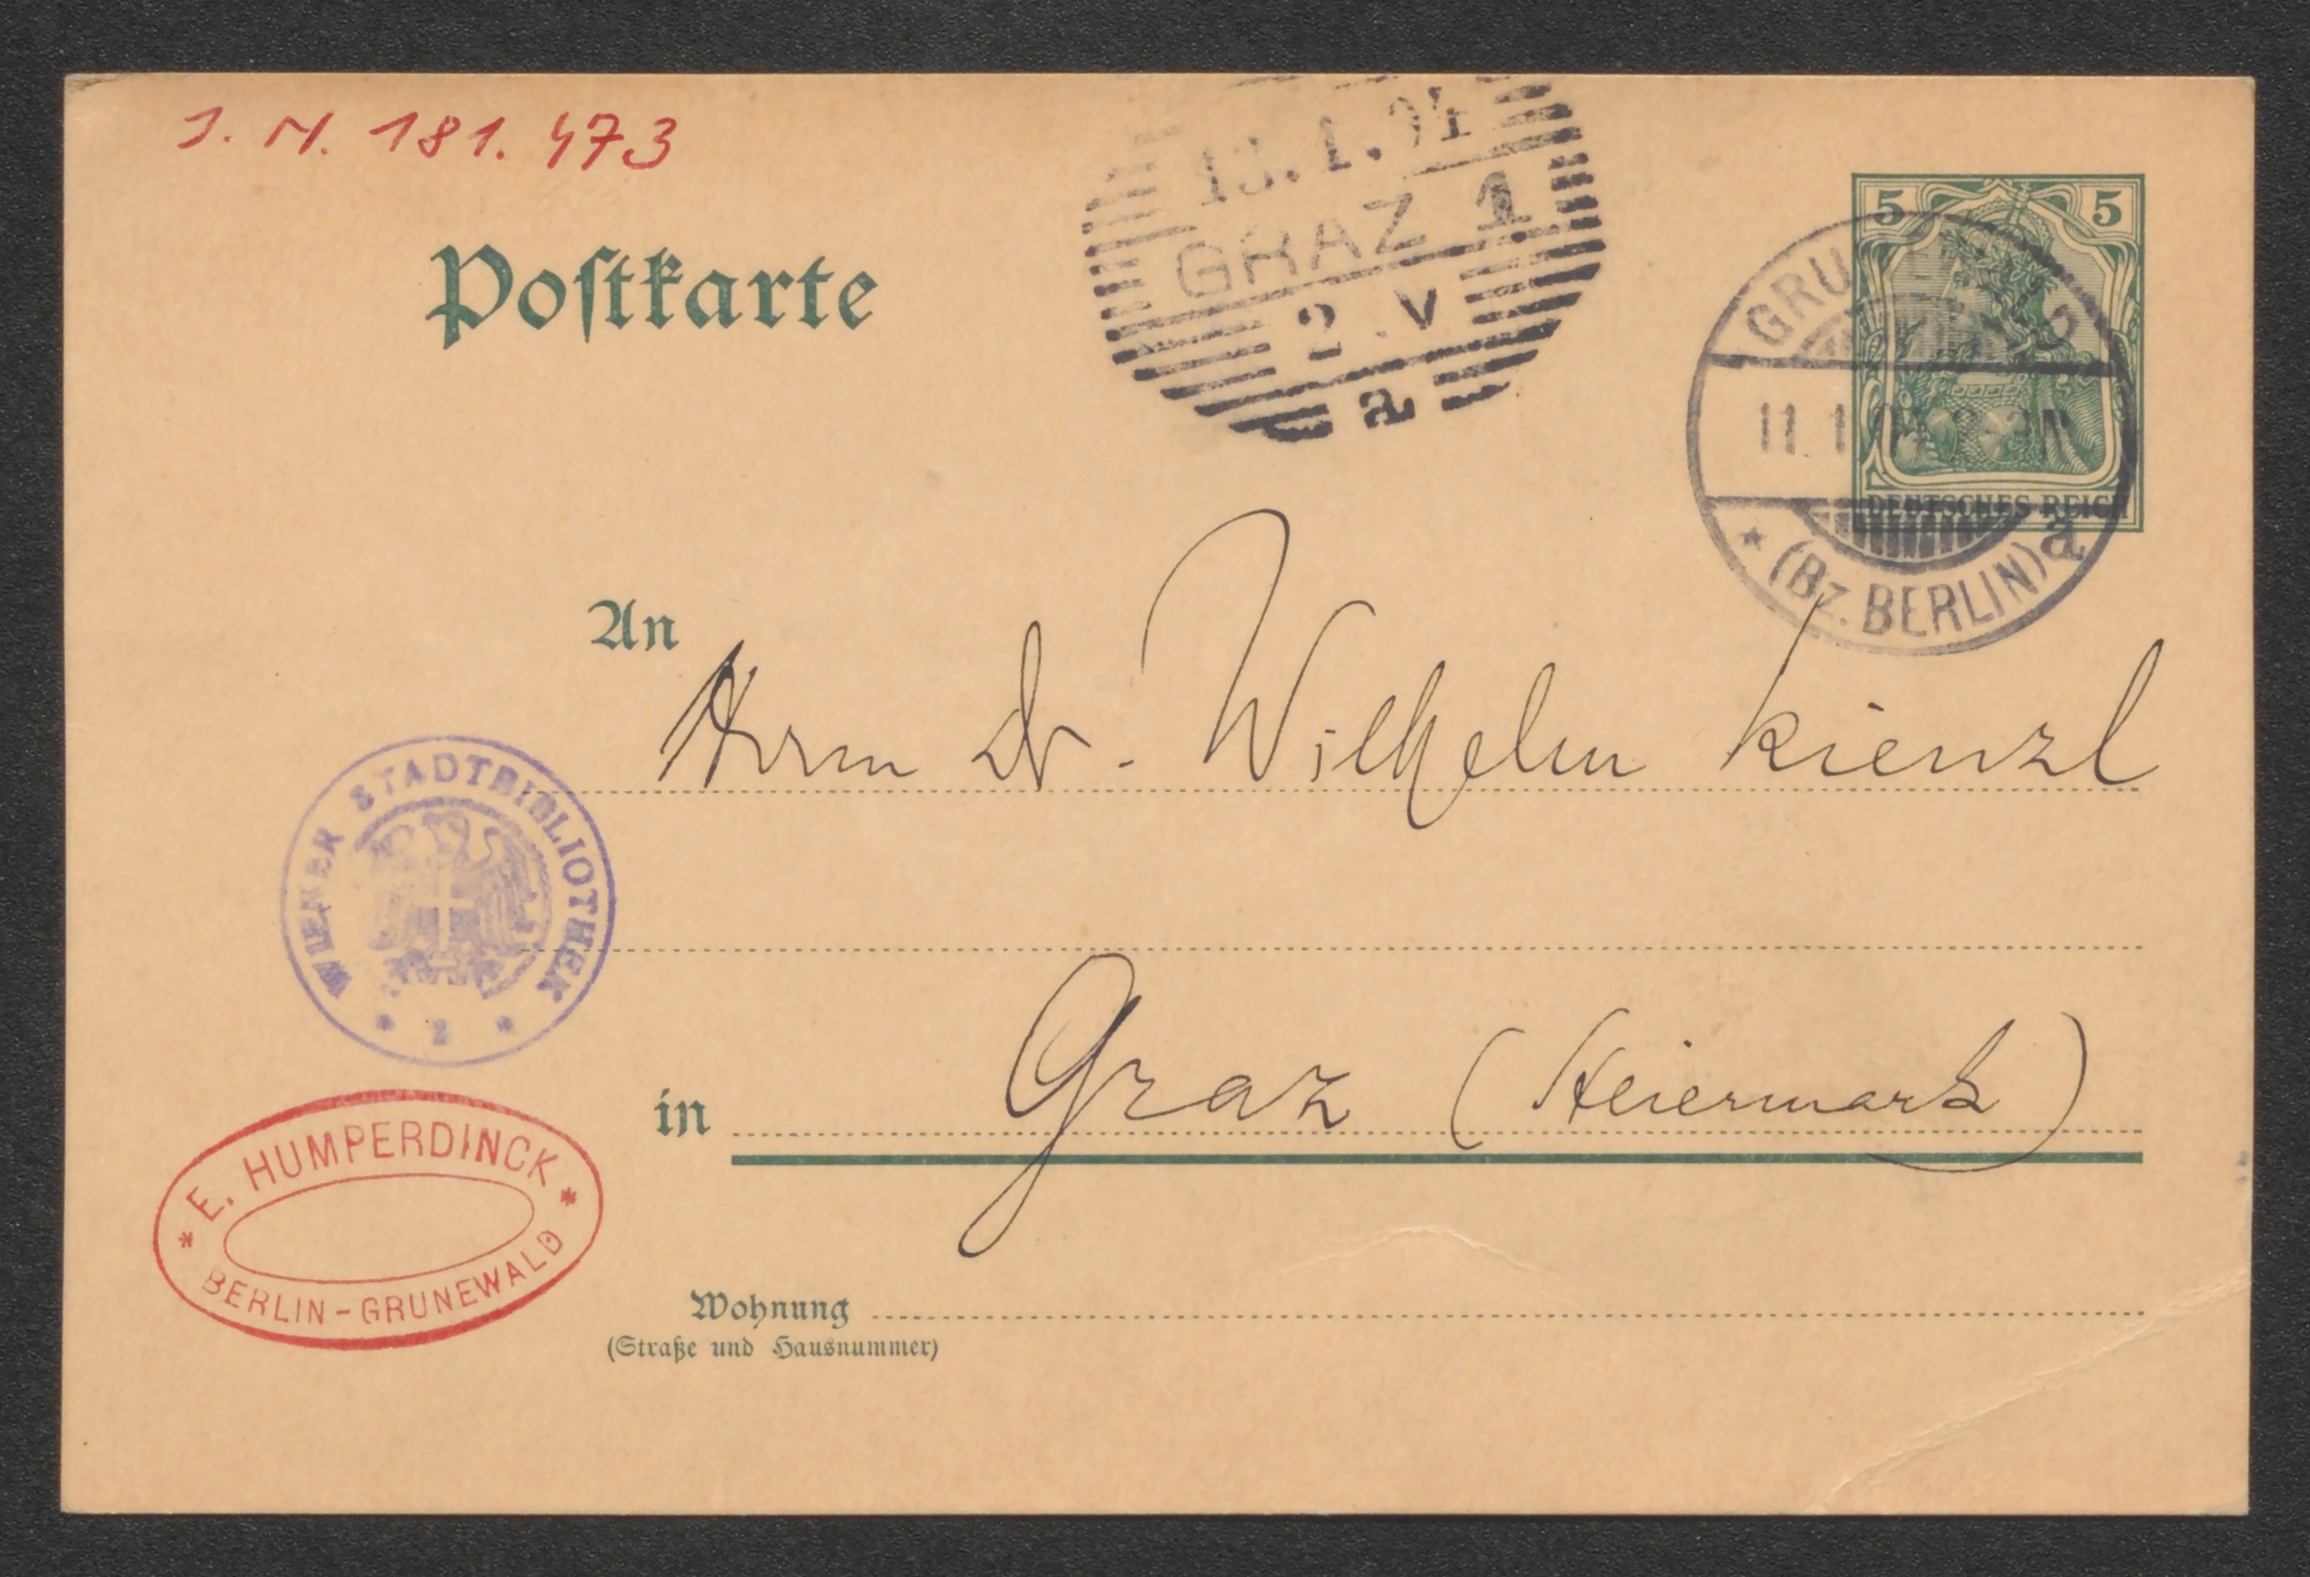 J. N. 181.473
Postkarte
13.1.04
GRAZ 1
2.V
a
5 5
DEUTSCHES REICH
GRUNEWALD
11.1.04
* (Bz. BERLIN) a
An
Herrn Dr. Wilhelm Kienzl
WIENER STADTBIBLIOTHEK
in Graz (Steiermark)
* E. HUMPERDINCK *
BERLIN-GRUNEWALD
Wohnung
(Straße und Hausnummer)